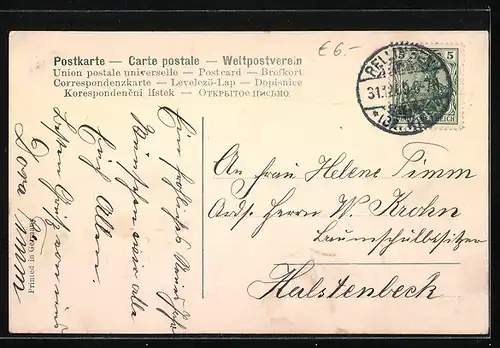 € 6.-
Postkarte — Carte postale — Weltpostverein
Union postale universelle — Postcard — Brefkort
Correspondenzkarte — Levelező-Lap — Dopisnice
Korespondenční lístek — ОТКРЫТОЕ ПИСЬМО.
5
REICH
31.12.
An Frau Helene Timm
Adr. Herrn W. Krohn
Baumschulbesitzer
Halstenbeck
Ein fröhliches Neues Jahr
Wünschen wir alle
Euch Allen.
Besten Gruß von uns
Dora Timm
Printed in Germany